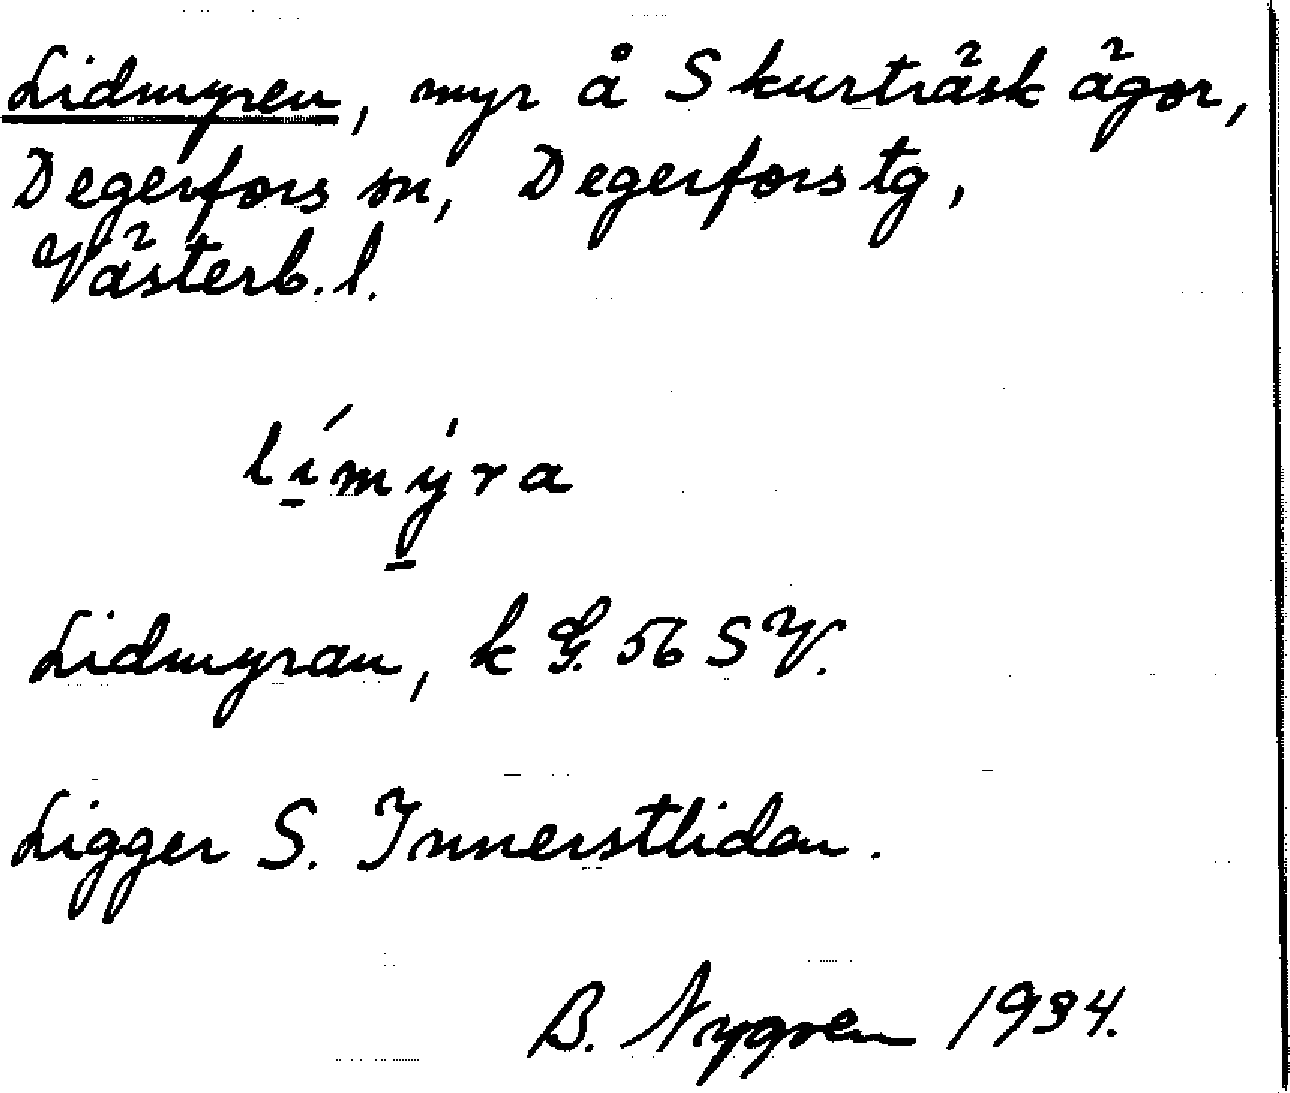 Lidmyren, myr å Skurträsk ägor,
Degerfors sn, Degerfors tg,
Västerb. l.
lı̱́my̱̍ra
Lidmyran, k G. 56 SV.
Ligger S. Innerstlidan.
B. Nygren 1934.